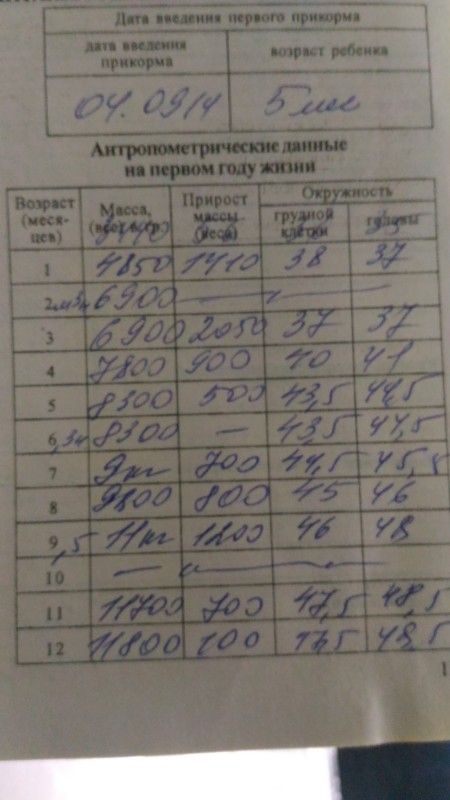 Дата введения первого прикорма
дата введения прикорма возраст ребенка
04.09/14 5 мес
Антропометрические данные
на первом году жизни
Возраст (меся-цев) Масса, Прирост массы (веса) Окружность
грудной клетки головы
1 4850 1410 38 37
2 6900 — —
3 6900 2050 37 37
4 7800 900 40 41
5 8300 500 43,5 44,5
6 8300 — 43,5 44,5
7 9кг 700 44,5 45,5
8 9800 800 45 46
9,5 11кг 1200 46 48
10 — —
11 11700 700 47,5 48,5
12 11800 100 48,5
1